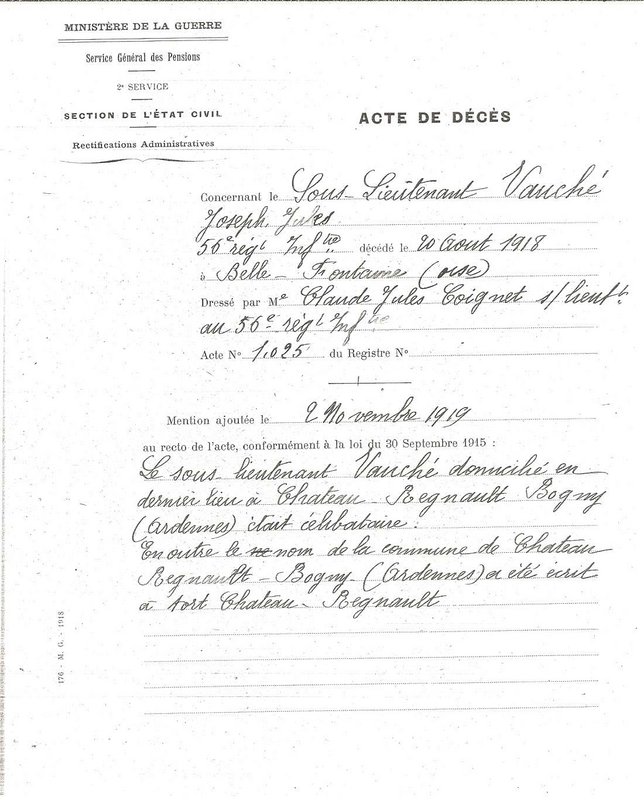 MINISTÈRE DE LA GUERRE
Service Général des Pensions
2e SERVICE
SECTION DE L'ÉTAT CIVIL
Rectifications Administratives
ACTE DE DÉCÈS
Concernant le Sous-Lieutenant Vauché
Joseph, Jules
56e régt Inftrie décédé le 20 Aout 1918
à Belle-Fontaine (oise)
Dressé par Me Claude Jules Coignet s/lieutt
au 56e régt Inftrie
Acte No 1.025 du Registre No
Mention ajoutée le 2 Novembre 1919
au recto de l'acte, conformément à la loi du 30 Septembre 1915 :
Le sous-lieutenant Vauché domicilié en
dernier lieu à Chateau-Regnault Bogny
(Ardennes) était célibataire.
En outre le nom de la commune de Chateau
Regnault-Bogny-(Ardennes) a été écrit
à tort Chateau-Regnault
176 - M. G. - 1918